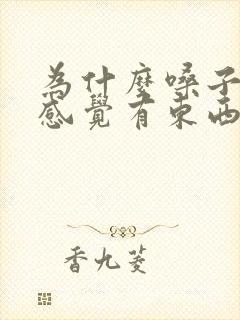 為什麼嗓子
感覺有東西
香九菱